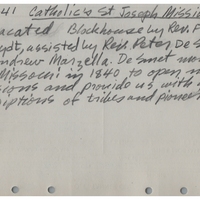 41 Catholic & St Joseph Missio
vacated Blockhouse by Rev. F
ydt, assisted by Rev. Peter De S
ndrew Mazella. De Smet mo
Missouri in 1840 to open m
sions and provide us with
iptions of tribes and pioneer